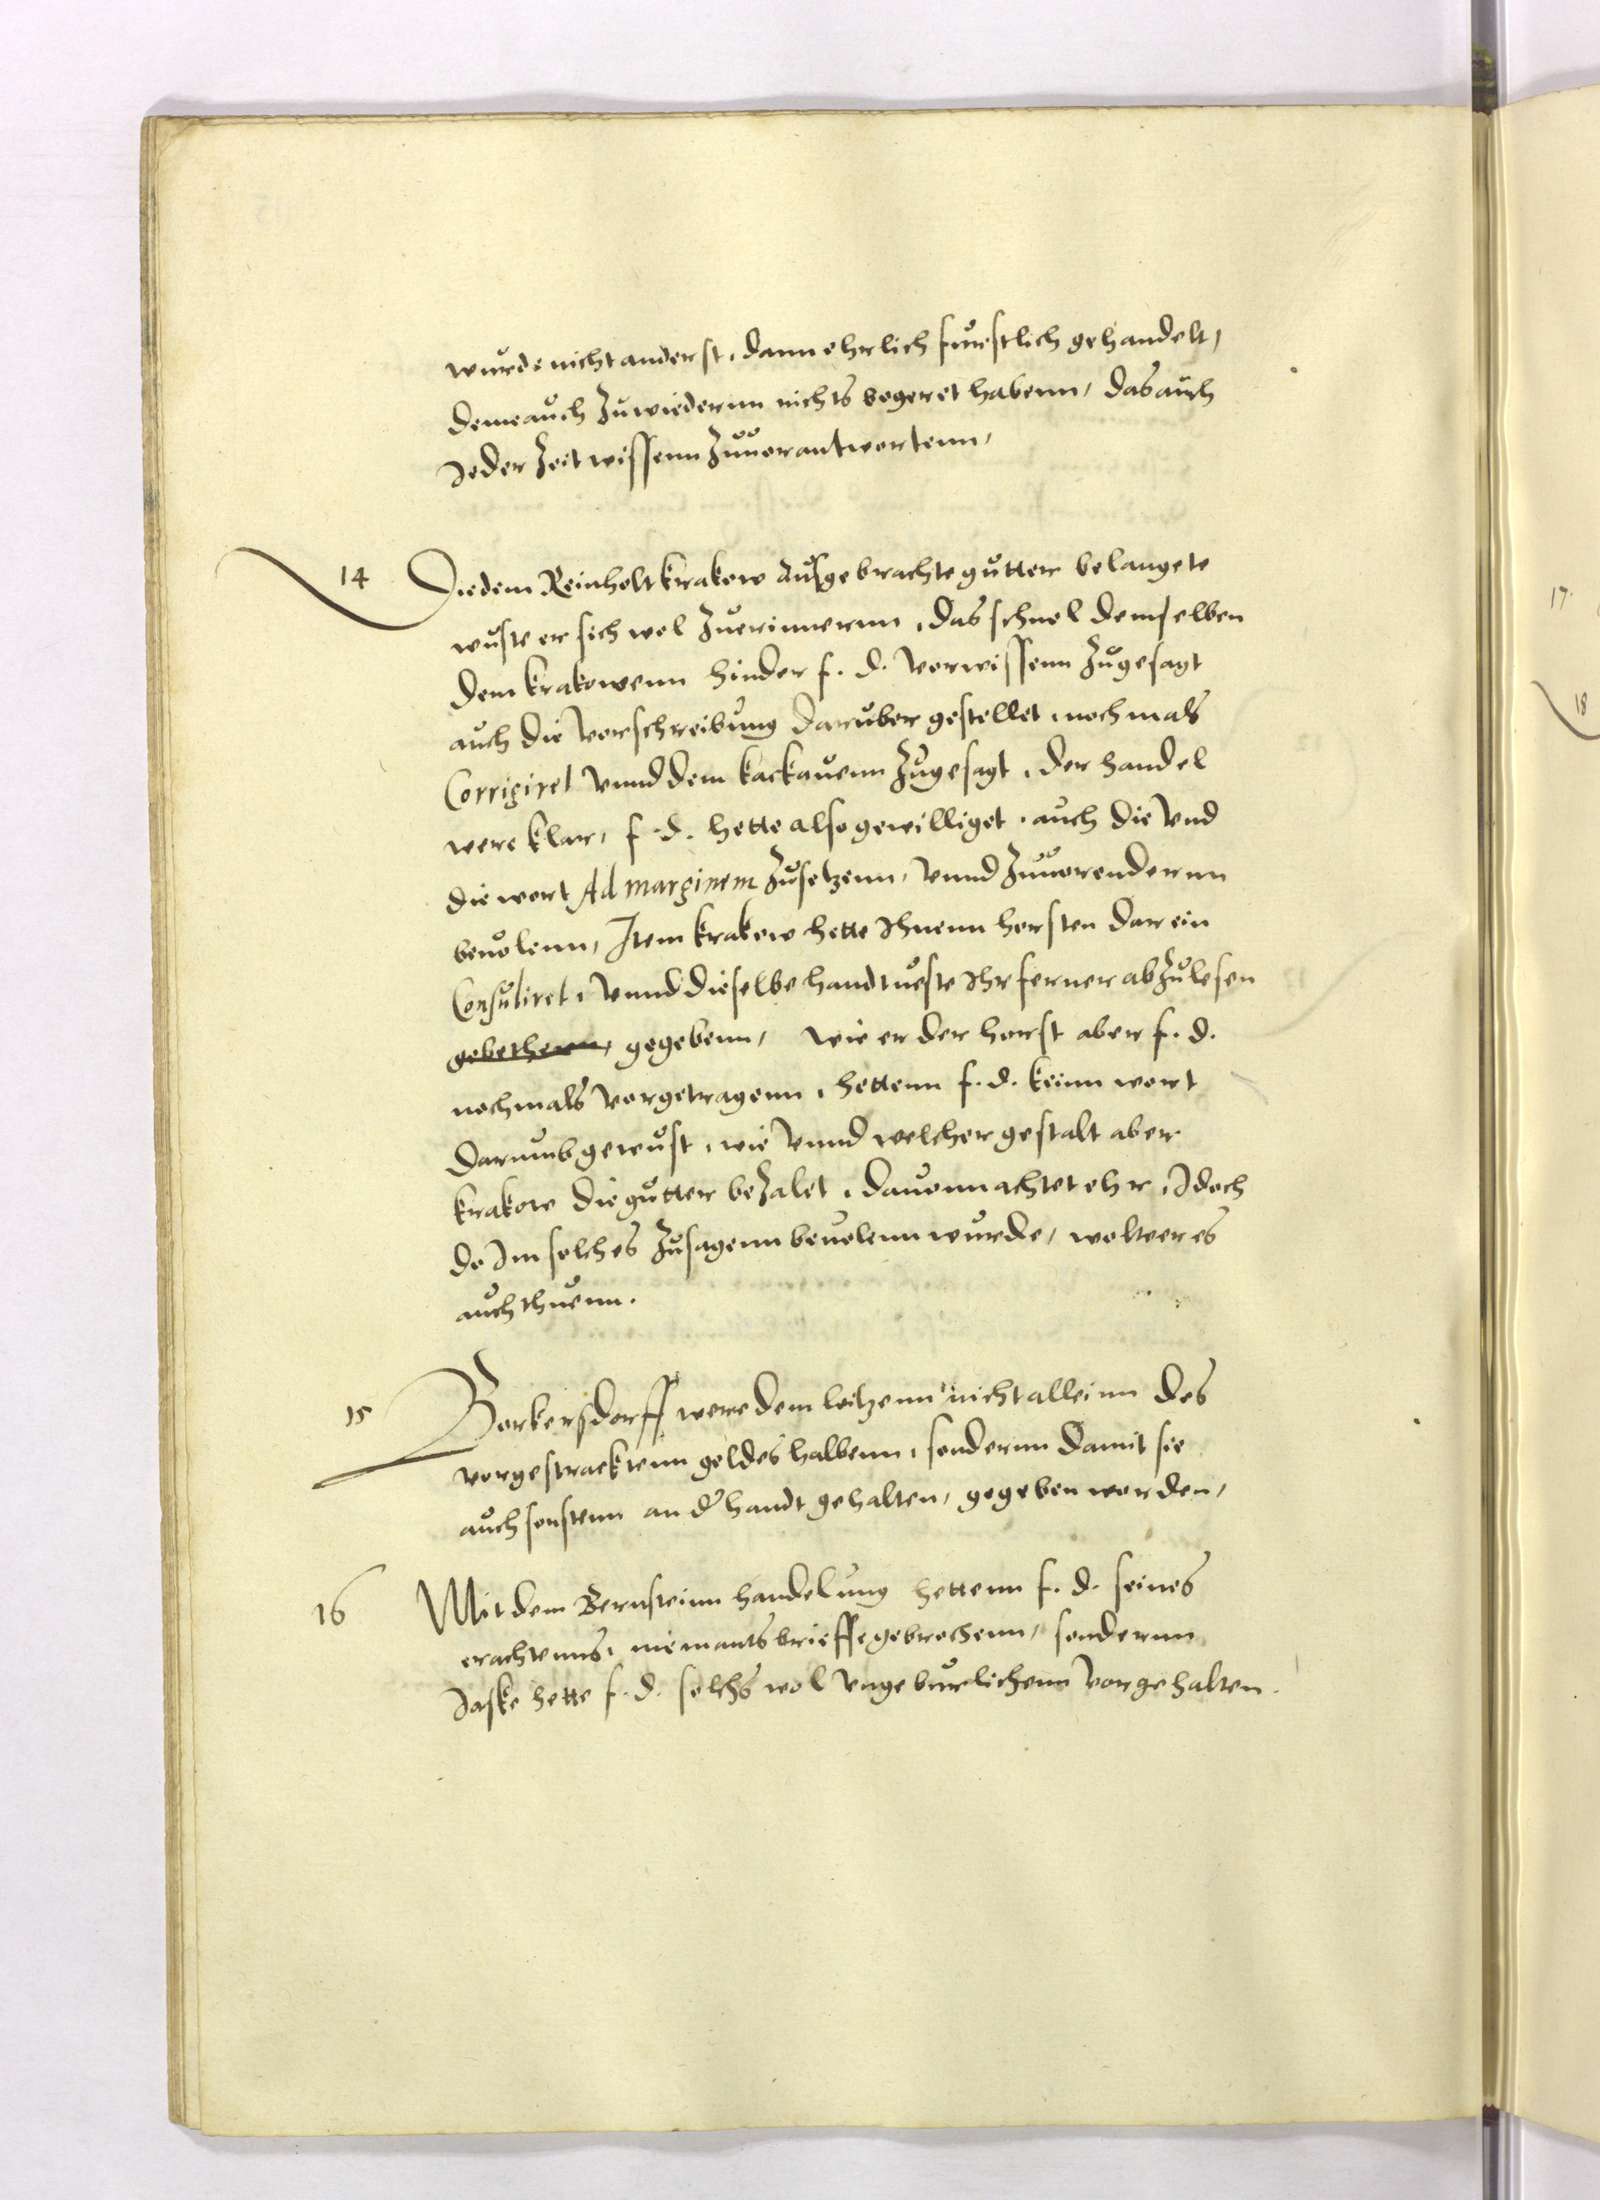 wurde nicht anderst, dann ehrlich furstlich gehandelt,
deme auch zuwiedernn nichts begeret habenn, das auch
Jeder Zeit wissenn zuuorantwortenn,
14 Die dem Reinholt Krakow ausgebrachte gutter belangete
wuste er sich wol zuerinnernn, das schnel demselben
dem Krakowenn hinder f. d. vorwissenn zugesagt
auch die vorschreibung daruber gestellet, nochmals
Corrigiret vnnd dem Krackauenn zugesagt, der handel
were klar, f. d. hette also gewilliget, auch die vnd
die wort Ad marginem zusetzenn, vnnd zuuorendernn
beuolenn, Item Krakow hette Ihnenn horsten darein
Consuliret, vnnd dieselbe handtueste Ihr ferner abzulesen
gebethenn, gegebenn, wie er der horst aber f. d.
nochmals vorgetragenn, hettenn f. d. keinn wort
darumb gewust, wie vnnd welcher gestalt aber
Krakow die gutter bezalet, dauonn achtet ehr, Idoch
do Im solches zusagenn beuolenn wurde, wolt er es
auch thuenn.
15 Borkersdorff were dem loitzenn nicht alleinn des
vorgestracktenn geldes halbenn, sondernn damit sie
auch sonstenn an d' handt gehalten, gegeben worden,
16 Mit dem Bernsteinn handelung hettenn f. d. seines
erachtenns, niemants brieffe gebrochenn, sondernn
Jaske hette f. d. solchs wol vngeburlichenn vorgehalten.
17
18